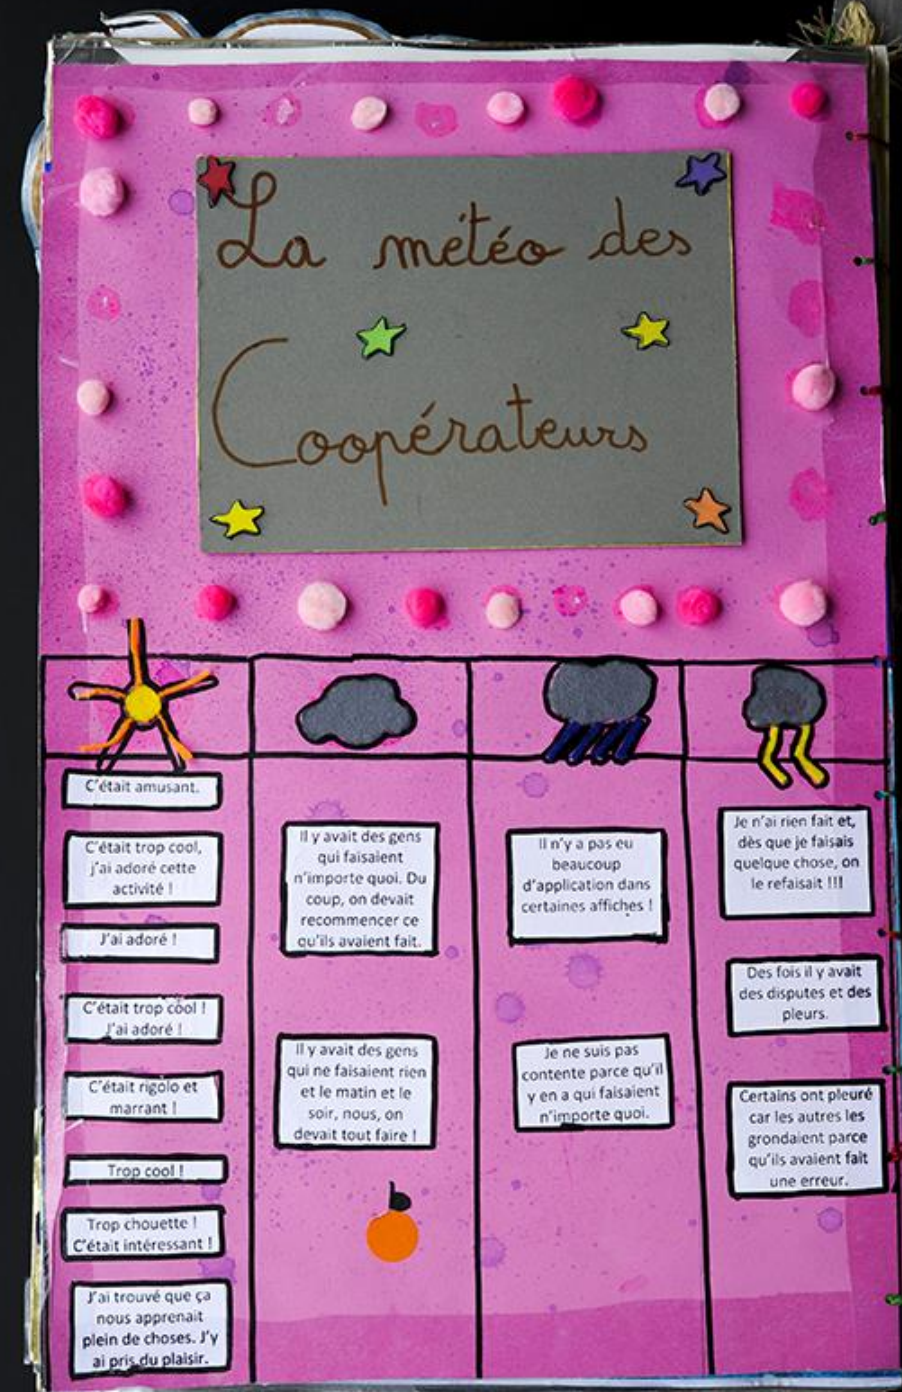 La météo des
Coopérateurs
C'était amusant.
C'était trop cool,
j'ai adoré cette
activité !
J'ai adoré !
C'était trop cool !
J'ai adoré !
C'était rigolo et
marrant !
Trop cool !
Trop chouette !
C'était intéressant !
J'ai trouvé que ça
nous apprenait
plein de choses. J'y
ai pris du plaisir.
Il y avait des gens
qui faisaient
n'importe quoi. Du
coup, on devait
recommencer ce
qu'ils avaient fait.
Il y avait des gens
qui ne faisaient rien
et le matin et le
soir, nous, on
devait tout faire !
Il n'y a pas eu
beaucoup
d'application dans
certaines affiches !
Je ne suis pas
contente parce qu'il
y en a qui faisaient
n'importe quoi.
Je n'ai rien fait et,
dès que je faisais
quelque chose, on
le refaisait !!!
Des fois il y avait
des disputes et des
pleurs.
Certains ont pleuré
car les autres les
grondaient parce
qu'ils avaient fait
une erreur.